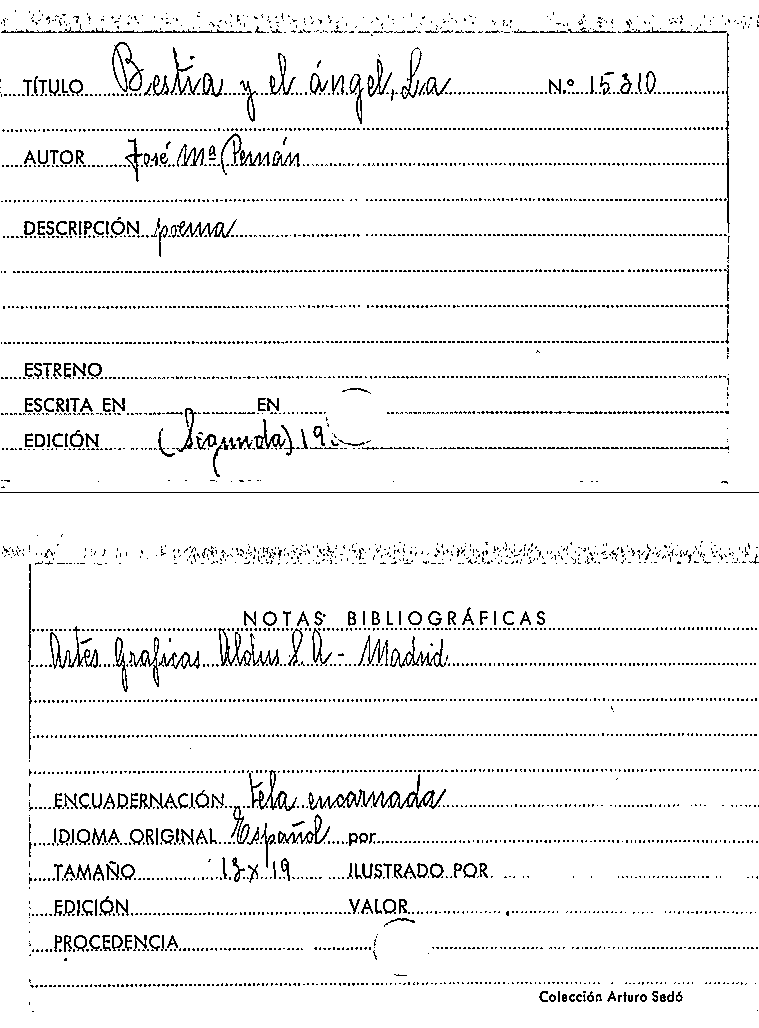 TÍTULO Bestia y el ángel, La N.º 15310
AUTOR José Mª Pemán
DESCRIPCIÓN poema
ESTRENO
ESCRITA EN EN
EDICIÓN (Segunda) 19
NOTAS BIBLIOGRÁFICAS
Artes Graficas Aldus S.A - Madrid
ENCUADERNACIÓN tela encarnada
IDIOMA ORIGINAL Español por
TAMAÑO 13 x 19 ILUSTRADO POR
EDICIÓN VALOR
PROCEDENCIA
Colección Arturo Sedó